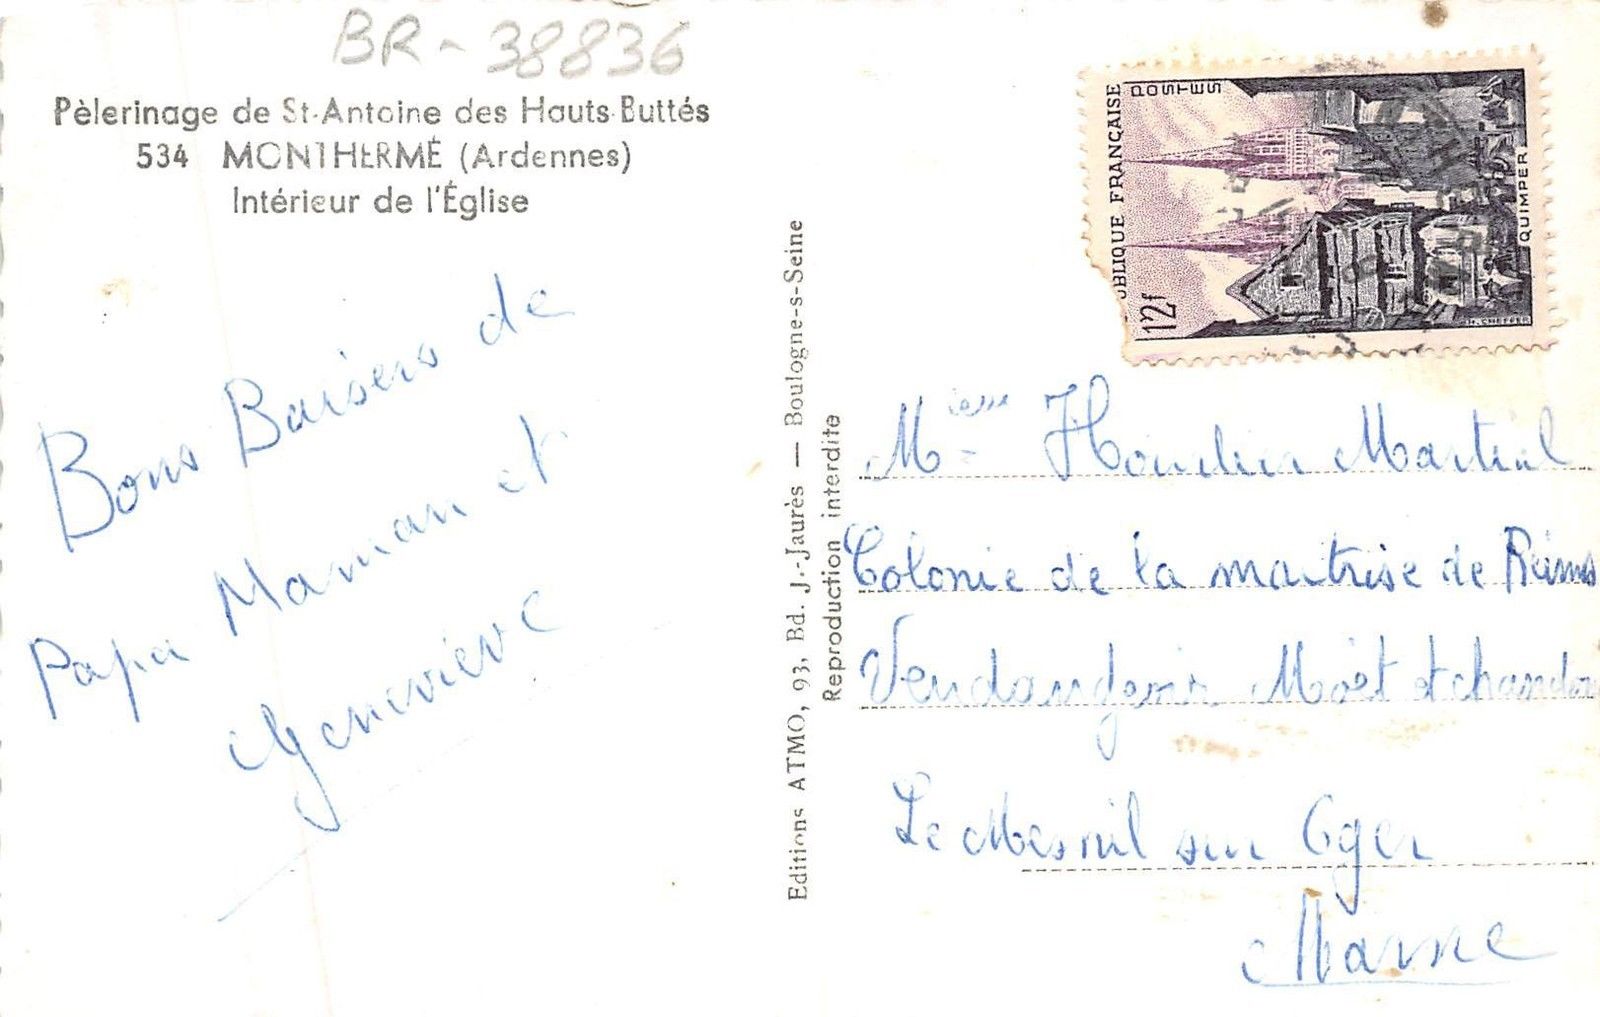 BR-38836
Pèlerinage de St-Antoine des Hauts-Buttés
534 MONTHERMÉ (Ardennes)
Intérieur de l'Église
Bons Baisers de
Papa Maman et
Geneviève
Editions ATMO, 93, Bd. J.-Jaurès — Boulogne-s-Seine
Reproduction interdite
UBLIQUE FRANÇAISE
POSTES
12f
QUIMPER
H. CHEFFER
Houdier Martial
Colonie de la maitrise de Reims
Vendangeoir Moët et chandon
Le Mesnil sur Oger
Marne